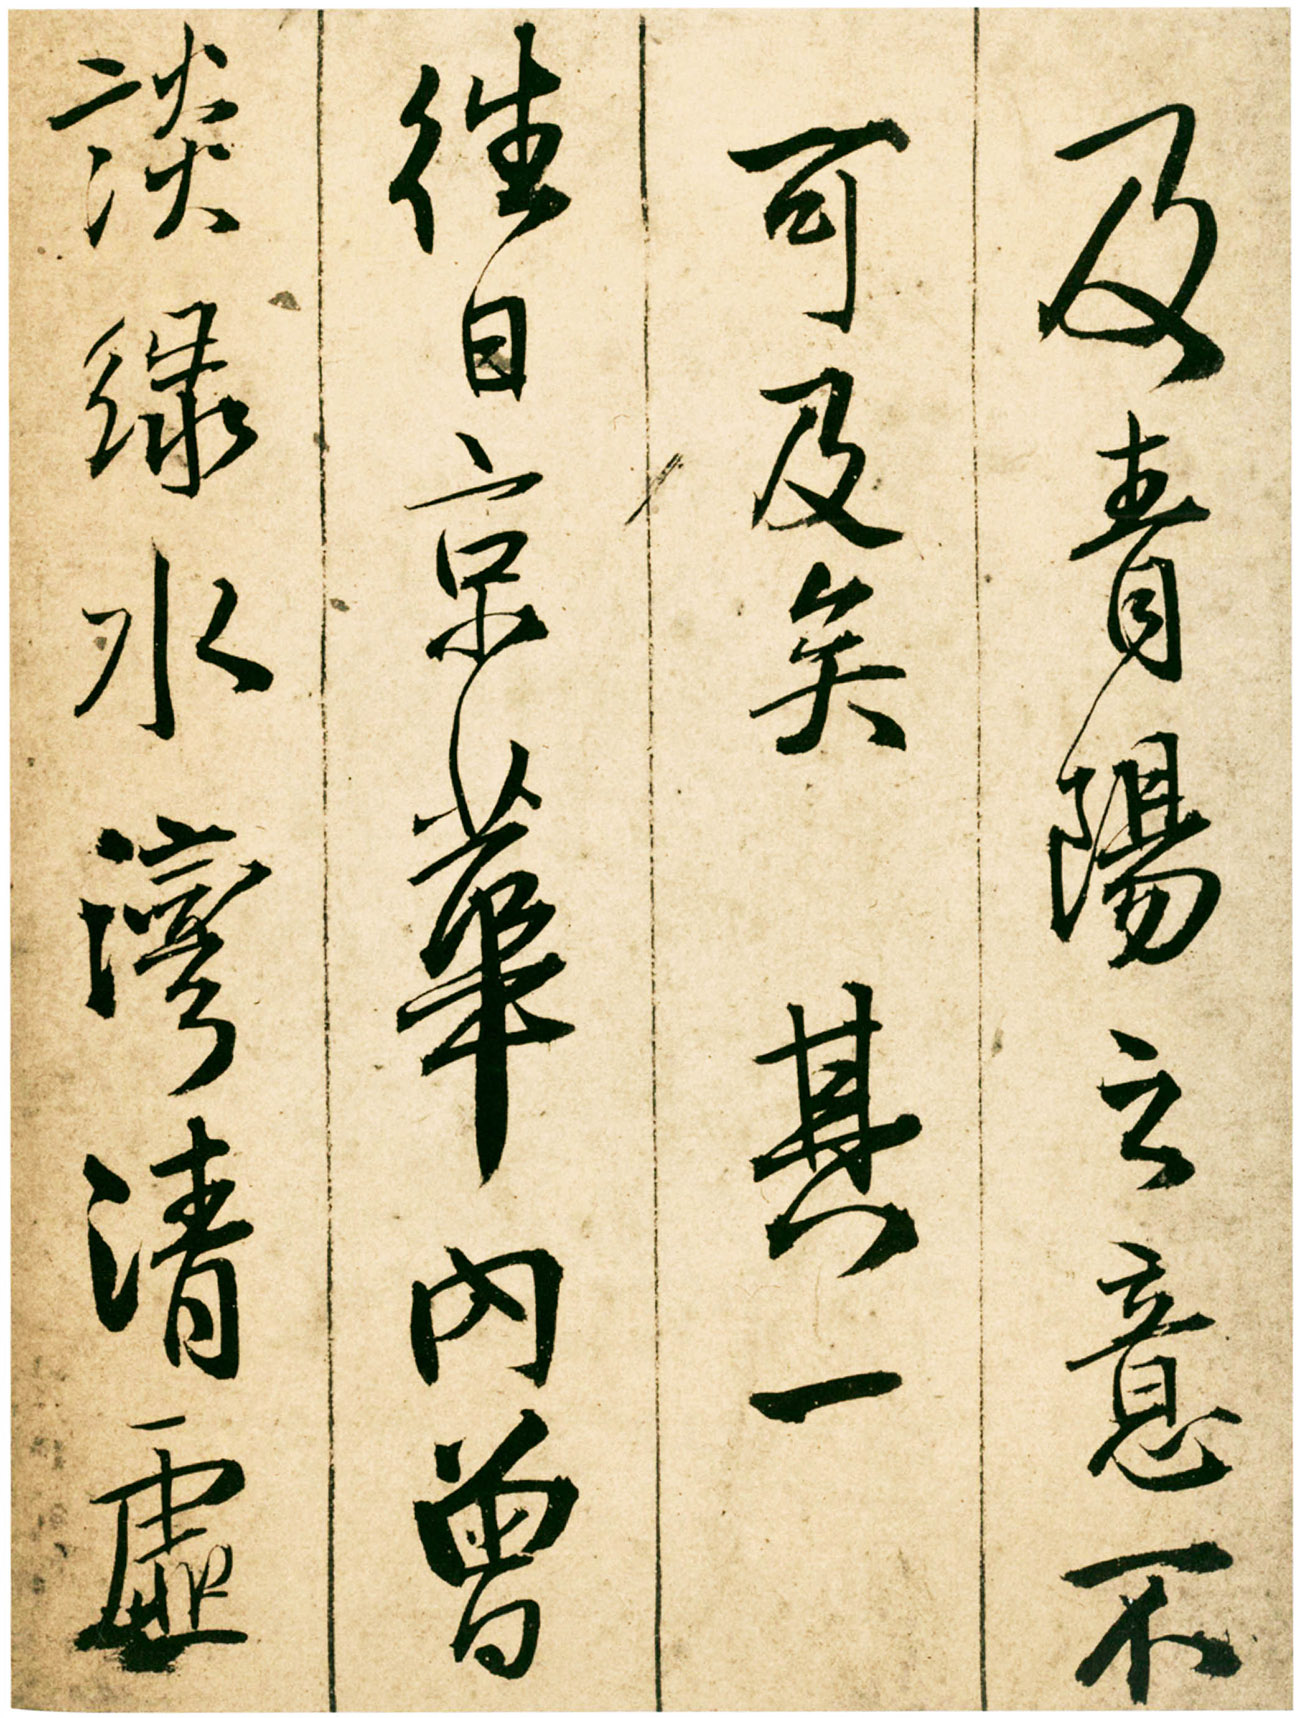 及青陽之意不
可及矣 其一
往日京華内曾
談緑水灣清
虛